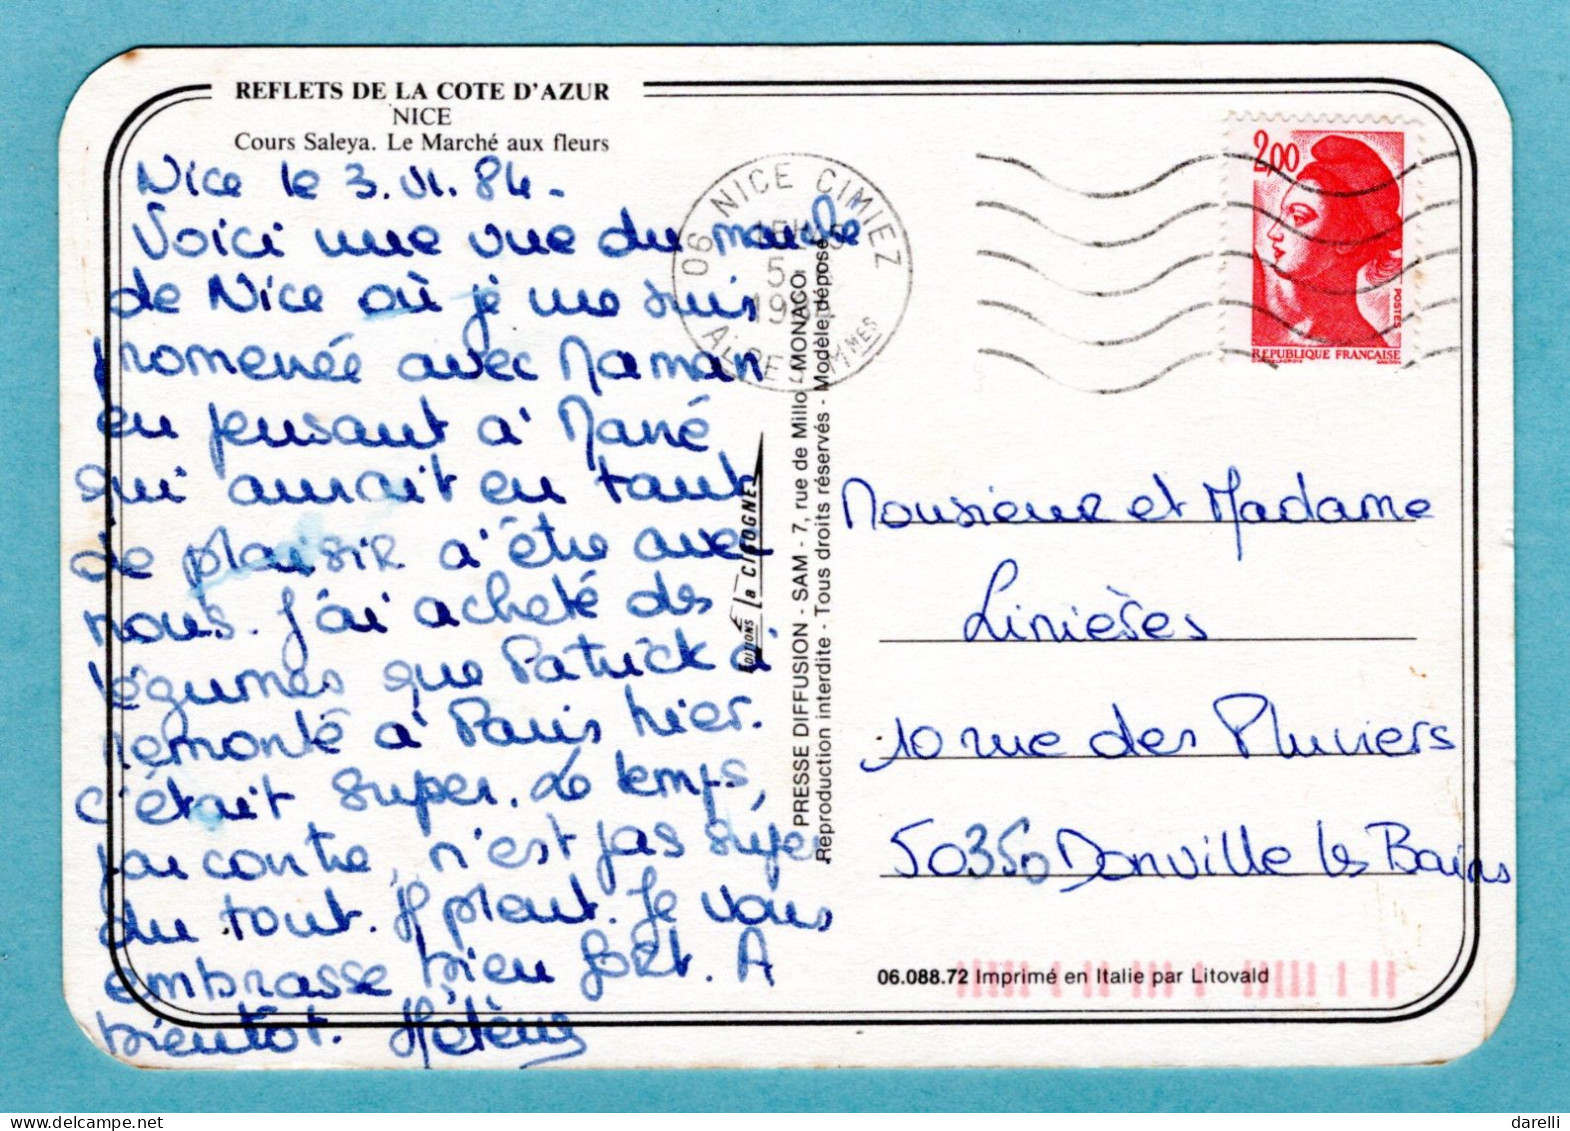 REFLETS DE LA COTE D'AZUR
NICE
Cours Saleya. Le Marché aux fleurs
Nice le 3.VI.84-
Voici une vue du marché
de Nice où je me suis
promenée avec Maman
en pensant à Mané
qui aurait eu tant
de plaisir à être avec
nous. J'ai acheté des
légumes que Patrick a
remonté à Paris hier.
c'était super. Le temps,
par contre, n'est pas super
du tout. Il pleut. Je vous
embrasse bien fort. A
bientôt. Hélène
06 NICE CIMIEZ
5
ALPES MMES
EDITIONS la CIGOGNE
PRESSE DIFFUSION - SAM - 7, rue de Millo - MONACO
Reproduction interdite - Tous droits réservés - Modèle déposé
2,00
POSTES
REPUBLIQUE FRANÇAISE
Monsieur et Madame
Linières
10 rue des Pluviers
50350 Donville les Bains
06.088.72 Imprimé en Italie par Litovald
darelli